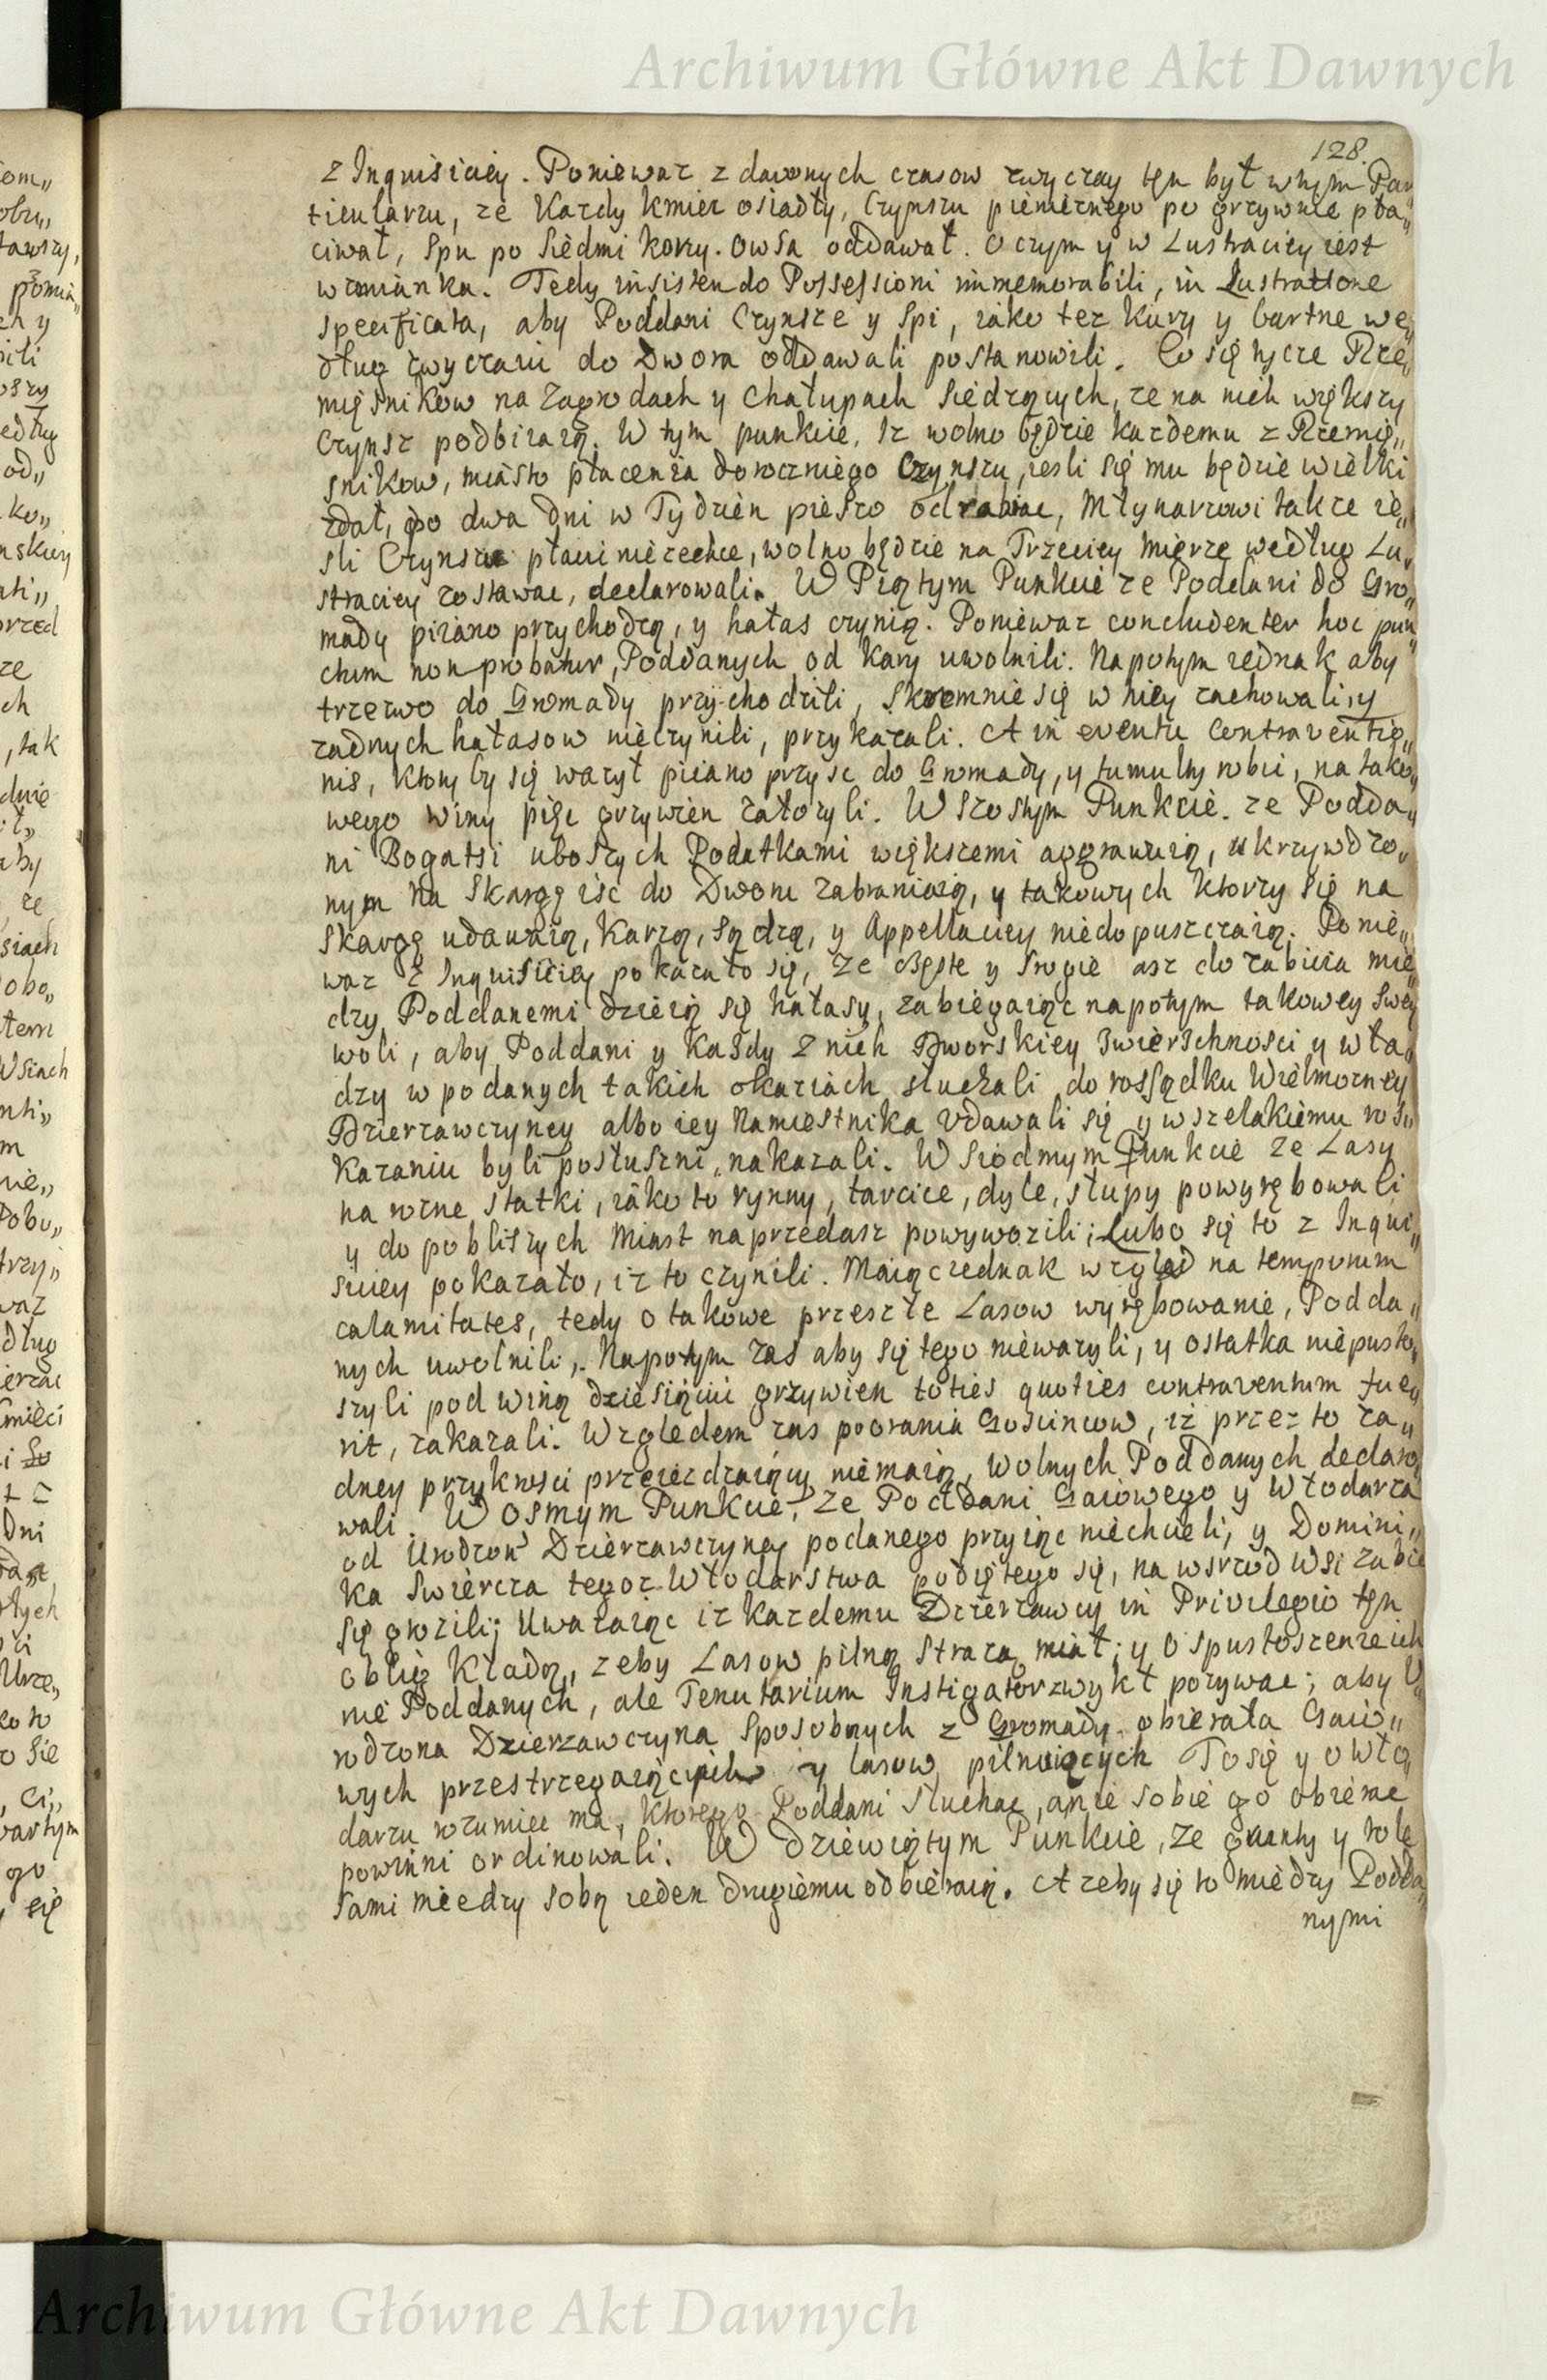 Archiwum Główne Akt Dawnych
128.
z Inquisiciey. Poniewaz z dawnych czasow zwyczay ten był w tym Par„
ticularzu, ze Kazdy kmiec osiadły, Czynszu pienieznego po grzywnie pła„
ciwał, Spu po Siedmi korcy. Owsa oddawał. O czym y w Lustraciey iest
wzmianka. Tedy insistendo Possessioni immemorabili, in Lustratione
specificata, aby Poddani Czynsze y Spi, iako tez Kury y bartne we„
dług zwyczaiu do Dwora oddawali postanowili. Co się tycze Rze„
mięsnikow na Zagrodach y Chałupach Siedzących, ze na nich większy
Czynsz podbiiaią. W tym punkcie, Iz wolno będzie kazdemu z Rzemię„
snikow, miasto płacenia doroczniego Czynszu, iesli się mu będzie wielki
zdał, po dwa dni w Tydzien pieszo odrabiac, Młynarzowi takze ie„
sli Czynszu płacic niezechce, wolno będzie na Trzeciey Mierze według Lu„
straciey zostawac, declarowali. W Piątym Punkcie ze Poddani do Gro„
mady piiano przychodzą, y hałas czynią. Poniewaz concludenter hoc pun„
ctum non probatur, Poddanych od kary uwolnili. Napotym iednak aby
trzezwo do Gromady przychodzili, Skromnie się w niey zachowali, y
zadnych hałasow nieczynili, przykazali. A in eventu contraventio„
nis, Ktory by się wazył piiano przysc do Gromady, y tumulty robic, na tako„
wego winy pięc grzywien załozyli. W Szostym Punkcie. ze Podda„
ni Bogatsi uboszych Podatkami większemi aggrawuią, ukrzywdzo„
nym na Skargę isc do Dworu zabraniaią, y takowych ktorzy się na
Skargę udawaią, Karzą, Sądzą, y Appellaciey niedopuszczaią. Ponie„
waz z Inquisiciey pokazało się, ze częste y srogie asz do zabicia mie„
dzy Poddanemi dzieią się hałasy, zabiegaiąc napotym takowey Swey
woli, aby Poddani y Kazdy z nich Dworskiey Zwierschnosci y wła„
dzy w podanych takich okaziach słuchali do rossądku Wielmozney
Dzierzawczyney albo iey Namiestnika Udawali się y wszelakiemu ros„
kazaniu byli posłuszni, nakazali. W Siodmym Punkcie ze Lasy
na rozne statki, iako to rynny, tarcice, dyle, słupy powyrębowali
y do pobliszych Miast naprzedasz powywozili; Lubo się to z Inqui„
siciey pokazało, iz to czynili. Maiąc iednak wzgląd na temporum
calamitates, tedy o takowe przeszłe Lasow wyrębowanie, Podda„
nych uwolnili, Napotym zas aby się tego niewazyli, y ostatka niepusto„
szyli pod winą dziesiąciu grzywien toties quoties contraventum fue„
rit, zakazali. Względem zas poorania Goscincow, iz przez to za„
dney przykrosci przeiezdzaiący niemaią, Wolnych Poddanych declaro„
wali. W Osmym Punkcie, Ze Poddani Gaiowego y Włodarza
od Urodzon Dzierzawczyney podanego przyiąc niechcieli, y Domini„
ka Swiercza tegoz Włodarstwa podiętego się, na wsrzod Wsi zabic
się grozili; Uwazaiąc iz kazdemu Dzierzawcy in Privilegio ten
oblig kładą, zeby Lasow pilną straza miał; y o spustoszenie ich
nie Poddanych, ale Tenutarium Instigator zwykł pozywac; aby U„
rodzona Dzierzawczyna Sposobnych z Gromady obierała Gaio„
wych przestrzegaiących y lasow pilnuiących To się y o Wło„
darzu rozumiec ma, ktorego Poddani Słuchac, a nie sobie go obierac
powinni ordinowali. W Dziewiątym Punkcie, ze grunty y role
Sami miedzy sobą ieden drugiemu odbieraią. A zeby się to miedzy Podda„
nymi
Archiwum Główne Akt Dawnych